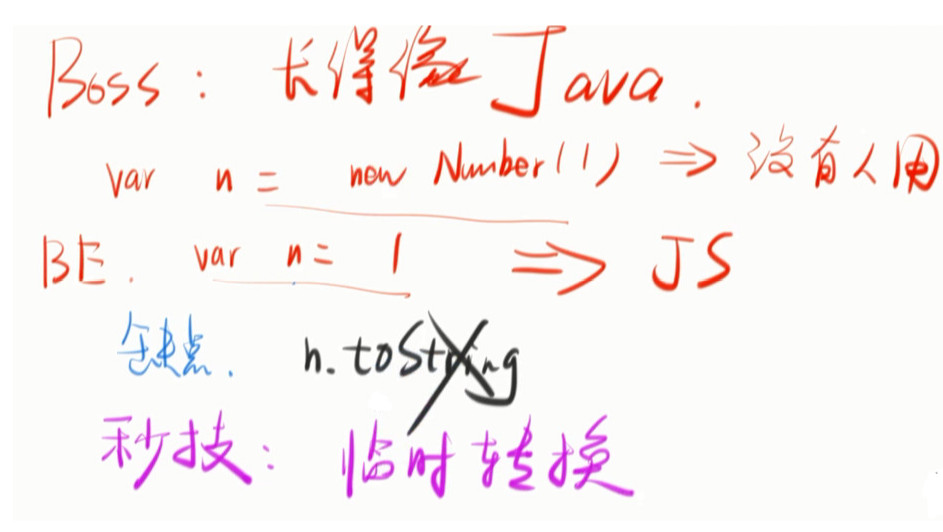 Boss: 长得像 Java.
var n = new Number(1) => 没有人用
BE. var n = 1 => JS
缺点. n.toString
秒技: 临时转换